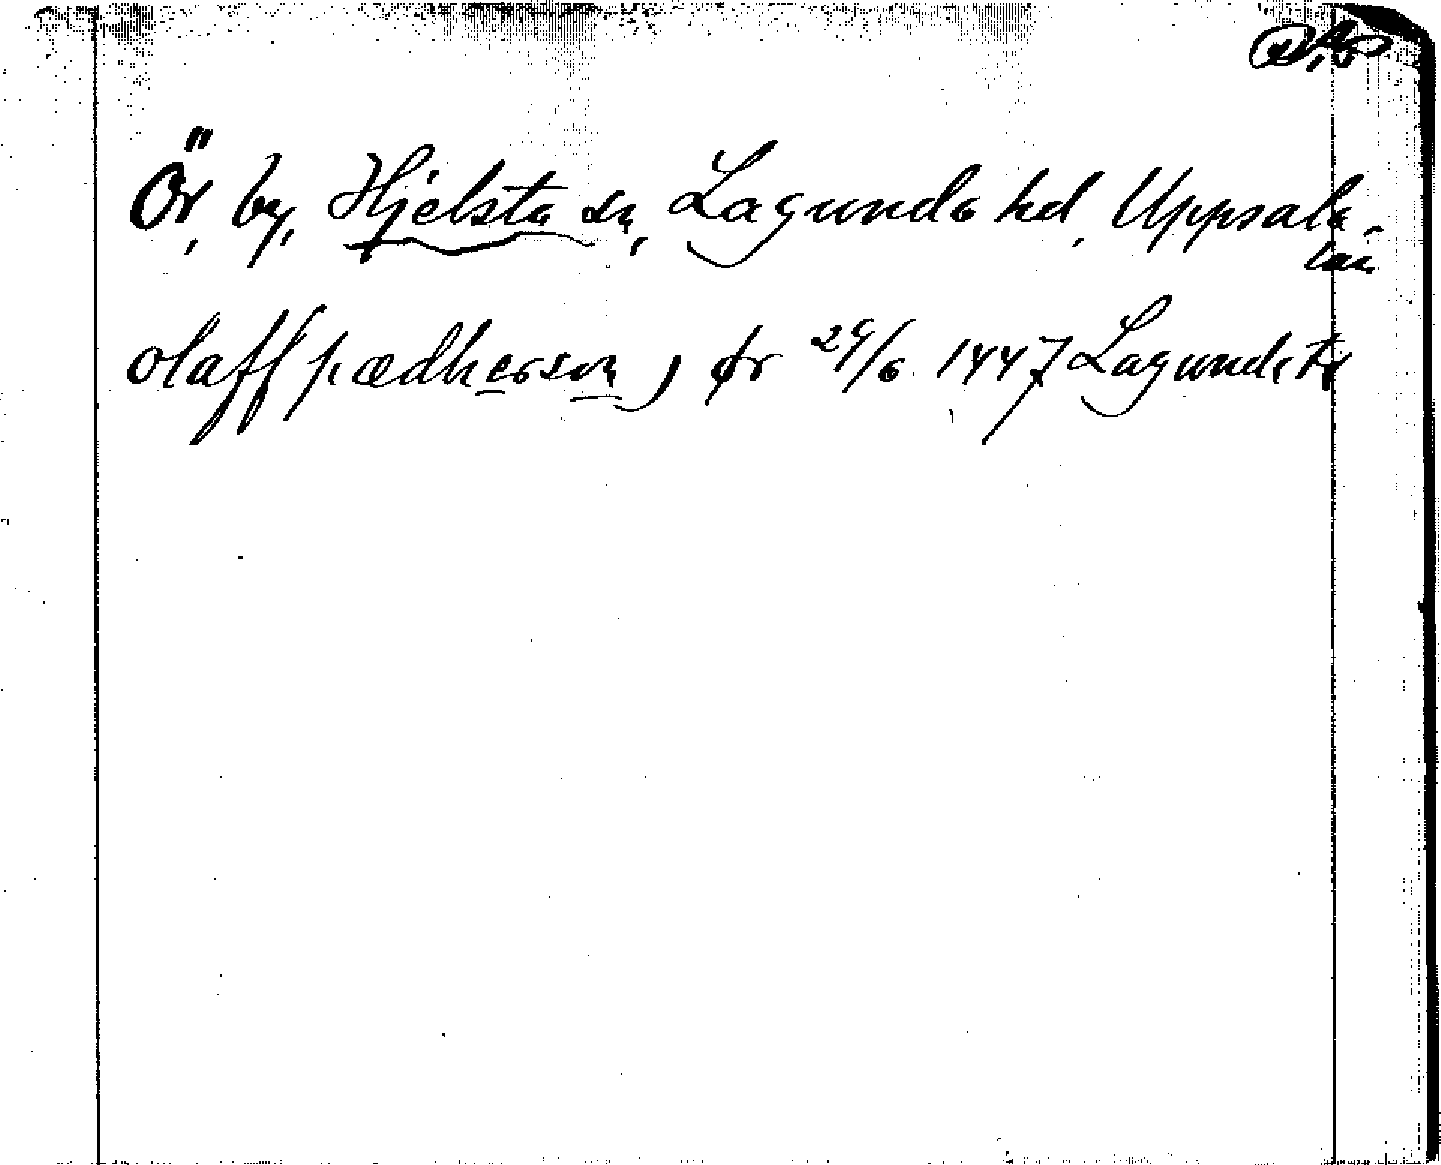 Ör, by, Hjelsta sn, Lagunda hd, Uppsala-
län
olaff pædherson, ør 29/6 1447 Lagunda